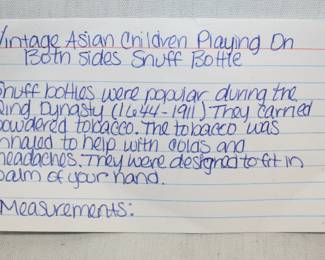 Vintage Asian Children Playing On
Both sides Snuff Bottle
Snuff bottles were popular during the
Qing Dynasty (1644-1911) They carried
powdered tobacco. The tobacco was
inhaled to help with colds and
headaches. They were designed to fit in
palm of your hand.
Measurements: